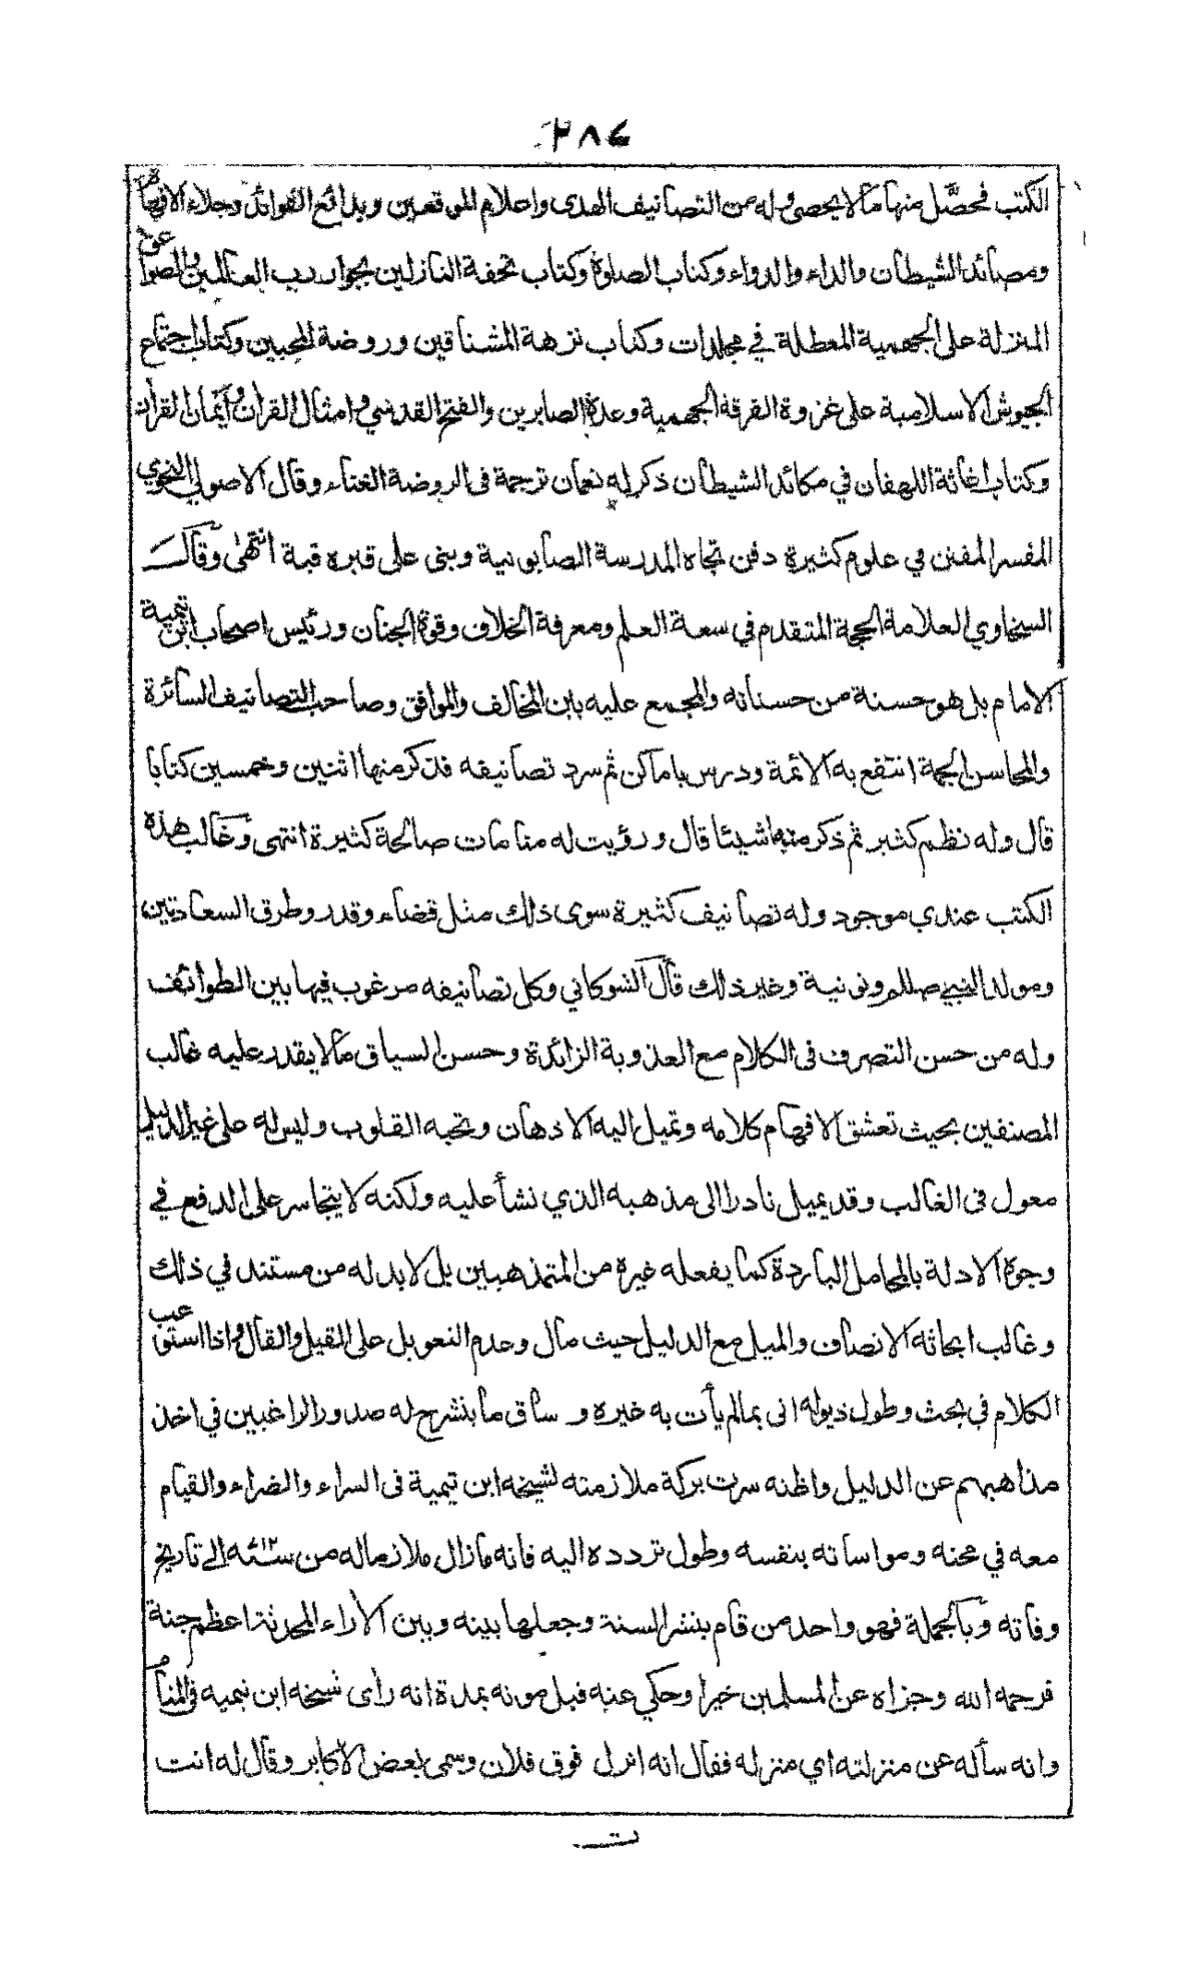 ٢٨٤
الكتب فحصّل منها ما لا يحصى وله من التصانيف الهدى واعلام الموقعين وبدائع الفوائد وجلاء الافهام
ومصائد الشيطان والداء والدواء وكتاب الصلوة وكتاب تحفة النازلين بجوار رب العالمين والصواعق
المنزلة على الجهمية المعطلة في مجلدات وكتاب نزهة المشتاقين وروضة المحبين وكتاب اجتماع
الجيوش الاسلامية على غزوة الفرقة الجهمية وعدة الصابرين والفتح القدسي وامثال القرآن وأيمان القرآن
وكتاب اغاثة اللهفان في مكائد الشيطان ذكر له نعمان ترجمة فى الروضة الغناء وقال الاصولي النحوي
المفسر المفنن في علوم كثيرة دفن تجاه المدرسة الصابونية وبنى على قبره قبة انتهىٰ وقال
السخاوي العلامة الحجة المتقدم في سعة العلم ومعرفة الخلاف وقوة الجنان ورئيس اصحاب ابن تيمية
الامام بل هو حسنة من حسناته والمجمع عليه بين المخالف والموافق وصاحب التصانيف السائرة
والمحاسن الجمة انتفع به الائمة ودرس باماكن ثم سرد تصانيفه فذكر منها اثنين وخمسين كتابا
قال وله نظم كثير ثم ذكر منه شيئا قال ورؤيت له منامات صالحة كثيرة انتهى وغالب هذه
الكتب عندي موجود وله تصانيف كثيرة سوى ذلك مثل قضاء وقدر وطرق السعادتين
ومولد النبي صللم ونونية وغير ذلك قال الشوكاني وكل تصانيفه مرغوب فيها بين الطوائف
وله من حسن التصرف فى الكلام مع العذوبة الزائدة وحسن السياق ما لا يقدر عليه غالب
المصنفين بحيث تعشق الافهام كلامه وتميل اليه الاذهان وتحبه القلوب وليس له على غير الدليل
معول فى الغالب وقد يميل نادرا الى مذهبه الذي نشأ عليه ولكنه لا يتجاسر على الدفع في
وجوه الادلة بالمحامل الباردة كما يفعله غيره من المتمذهبين بل لا بد له من مستند في ذلك
وغالب ابحاثه الانصاف والميل مع الدليل حيث مال وعدم التعويل على القيل والقال واذا استوعب
الكلام في بحث وطول ذيوله اتى بما لم يأت به غيره و ساق ما ينشرح له صدور الراغبين في اخذ
مذاهبهم عن الدليل واظنه سرت بركة ملازمته لشيخه ابن تيمية فى السراء والضراء والقيام
معه في محنه ومواساته بنفسه وطول تردده اليه فانه ما زال ملازما له من سنة ٧١٢ه الى تاريخ
وفاته وبالجملة فهو واحد من قام بنشر السنة وجعلها بينه وبين الآراء المحدثة اعظم جنة
فرحمه الله وجزاه عن المسلمين خيرا وحكي عنه قبل موته بمدة انه رأى شيخه ابن تيميه فى المنام
وانه سأله عن منزلته اي منزله فقال انه انزل فوق فلان وسمى بعض الاكابر وقال له انت